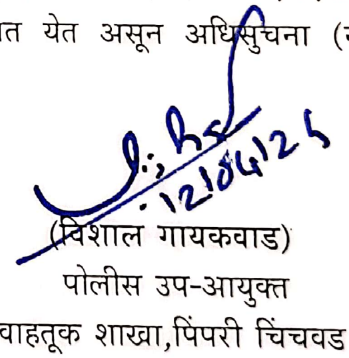 त येत असून अधिसुचना (
12/04/25
(विशाल गायकवाड)
पोलीस उप-आयुक्त
वाहतूक शाखा,पिंपरी चिंचवड